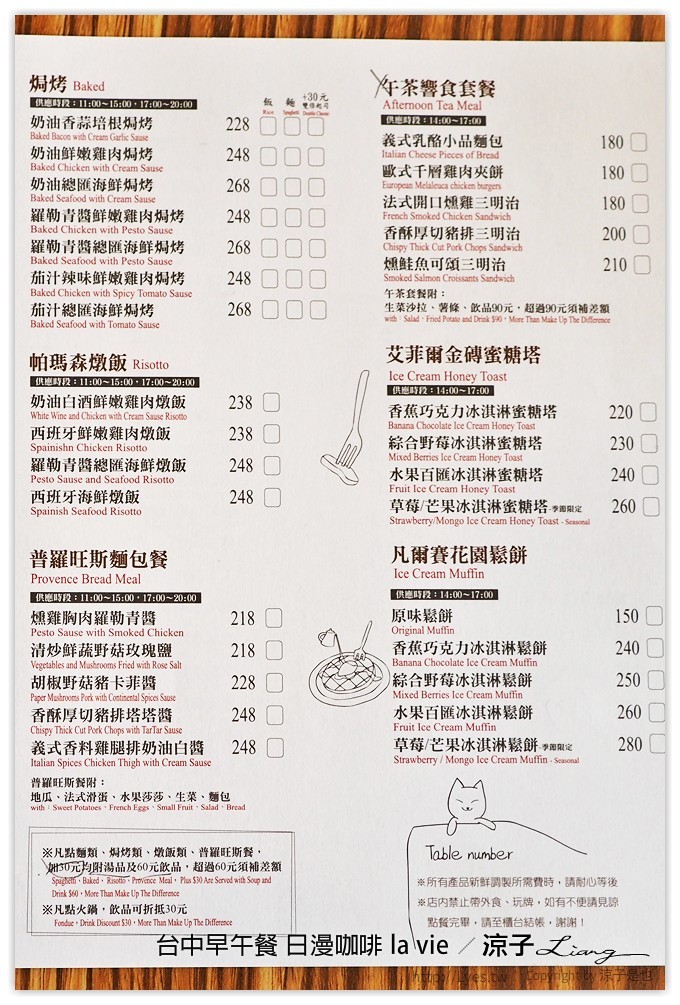 焗烤 Baked
供應時段：11:00~15:00，17:00~20:00
飯 麵 +30元
雙倍起司
Rice Spaghetti Double Cheese
奶油香蒜培根焗烤 228
Baked Bacon with Cream Garlic Sause
奶油鮮嫩雞肉焗烤 248
Baked Chicken with Cream Sause
奶油總匯海鮮焗烤 268
Baked Seafood with Cream Sause
羅勒青醬鮮嫩雞肉焗烤 248
Baked Chicken with Pesto Sause
羅勒青醬總匯海鮮焗烤 268
Baked Seafood with Pesto Sause
茄汁辣味鮮嫩雞肉焗烤 248
Baked Chicken with Spicy Tomato Sause
茄汁總匯海鮮焗烤 268
Baked Seafood with Tomato Sause
帕瑪森燉飯 Risotto
供應時段：11:00~15:00，17:00~20:00
奶油白酒鮮嫩雞肉燉飯 238
White Wine and Chicken with Cream Sause Risotto
西班牙鮮嫩雞肉燉飯 238
Spainishn Chicken Risotto
羅勒青醬總匯海鮮燉飯 248
Pesto Sause and Seafood Risotto
西班牙海鮮燉飯 248
Spainish Seafood Risotto
普羅旺斯麵包餐
Provence Bread Meal
供應時段：11:00~15:00，17:00~20:00
燻雞胸肉羅勒青醬 218
Pesto Sause with Smoked Chicken
清炒鮮蔬野菇玫瑰鹽 218
Vegetables and Mushrooms Fried with Rose Salt
胡椒野菇豬卡菲醬 228
Paper Mushrooms Pork with Continental Spices Sause
香酥厚切豬排塔塔醬 248
Chispy Thick Cut Pork Chops with TarTar Sause
義式香料雞腿排奶油白醬 248
Italian Spices Chicken Thigh with Cream Sause
普羅旺斯餐附：
地瓜、法式滑蛋、水果莎莎、生菜、麵包
with：Sweet Potatoes、French Eggs、Small Fruit、Salad、Bread
※凡點麵類、焗烤類、燉飯類、普羅旺斯餐，
加30元均附湯品及60元飲品，超過60元須補差額
Spaghetti、Baked、Risotto、Provence Meal，Plus $30 Are Served with Soup and
Drink $60，More Than Make Up The Difference
※凡點火鍋，飲品可折抵30元
Fondue，Drink Discount $30，More Than Make Up The Difference
午茶響食套餐
Afternoon Tea Meal
供應時段：14:00~17:00
義式乳酪小品麵包 180
Italian Cheese Pieces of Bread
歐式千層雞肉夾餅 180
European Melaleuca chicken burgers
法式開口燻雞三明治 180
French Smoked Chicken Sandwich
香酥厚切豬排三明治 200
Chispy Thick Cut Pork Chops Sandwich
燻鮭魚可頌三明治 210
Smoked Salmon Croissants Sandwich
午茶套餐附：
生菜沙拉、薯條、飲品90元，超過90元須補差額
with：Salad、Fried Potato and Drink $90，More Than Make Up The Difference
艾菲爾金磚蜜糖塔
Ice Cream Honey Toast
供應時段：14:00~17:00
香蕉巧克力冰淇淋蜜糖塔 220
Banana Chocolate Ice Cream Honey Toast
綜合野莓冰淇淋蜜糖塔 230
Mixed Berries Ice Cream Honey Toast
水果百匯冰淇淋蜜糖塔 240
Fruit Ice Cream Honey Toast
草莓/芒果冰淇淋蜜糖塔-季節限定 260
Strawberry/Mongo Ice Cream Honey Toast - Seasonal
凡爾賽花園鬆餅
Ice Cream Muffin
供應時段：14:00~17:00
原味鬆餅 150
Original Muffin
香蕉巧克力冰淇淋鬆餅 240
Banana Chocolate Ice Cream Muffin
綜合野莓冰淇淋鬆餅 250
Mixed Berries Ice Cream Muffin
水果百匯冰淇淋鬆餅 260
Fruit Ice Cream Muffin
草莓/芒果冰淇淋鬆餅-季節限定 280
Strawberry / Mongo Ice Cream Muffin - Seasonal
Table number
※所有產品新鮮調製所需費時，請耐心等後
※店內禁止帶外食、玩牌，如有不便請見諒
點餐完畢，請至櫃台結帳，謝謝！
台中早午餐 日漫咖啡 la vie ／涼子 Liang
http://lyes.tw Copyright by 涼子是也